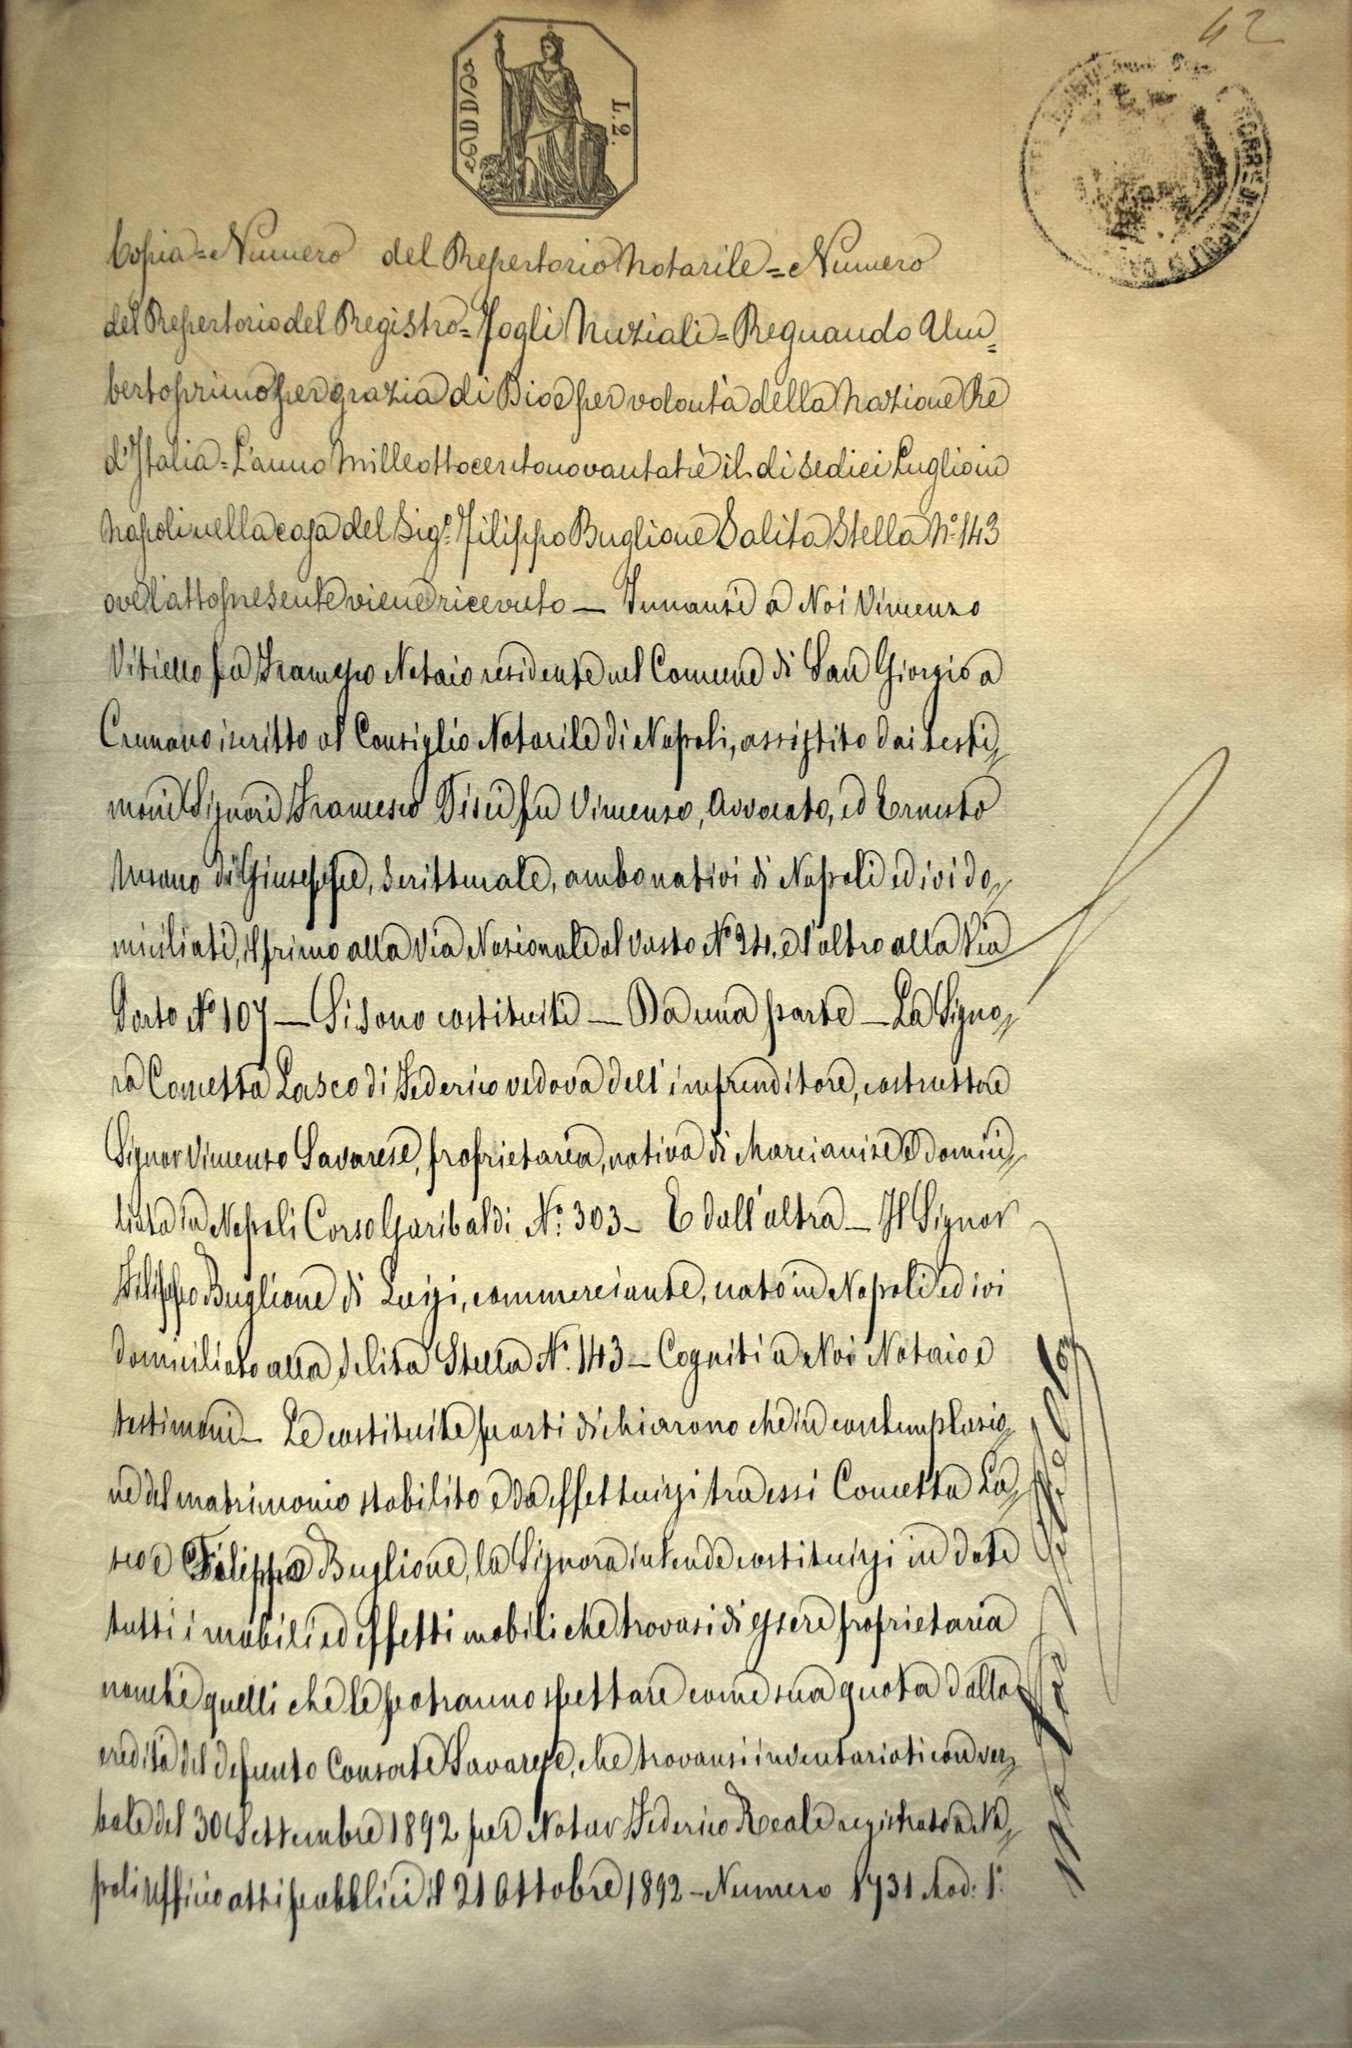 42
L. 2.
Copia = Numero del Repertorio Notarile = Numero
del Repertorio del Registro = Fogli Nuziali = Regnando Um=
berto primo per grazia di Dio e per volontà della Nazione Re
d'Italia = L'anno Milleottocentonovantatrè il dì sedici Luglio in
Napoli nella casa del Sigr. Filippo Buglione Salita Stella No. 143
ove l'atto presente viene ricevuto — Innanzi a Noi Vincenzo
Vitiello fu Francesco Notaio residente nel Comune di San Giorgio a
Cremano iscritto al Consiglio Notarile di Napoli, assistito dai testi=
moni Signori Francesco Tisci fu Vincenzo, Avvocato, ed Ernesto
di Giuseppe, Scritturale, ambo nativi di Napoli ed ivi do=
miciliati, il primo alla Via Nazionale al Vasto No 24. e l'altro alla Via
Porto No 107 — Si sono costituiti — Da una parte — La Signo=
ra Concetta Lasco di Federico vedova dell'imprenditore, costruttore
Signor Vincenzo Savarese, proprietaria, nativa di Marcianise e domici=
liata in Napoli Corso Garibaldi No. 303 — E dall'altra — Il Signor
Filippo Buglione di Luigi, commerciante, nato in Napoli ed ivi
domiciliato alla Salita Stella No. 143 — Cogniti a Noi Notaio e
testimoni — Le costituite parti dichiarono che in contemplazio=
ne del matrimonio stabilito e da effettuirsi tra essi Concetta La=
sco e Filippo Buglione, la Signora intende costituirsi in dote
tutti i mobili ed effetti mobili che trovasi di essere proprietaria
nonchè quelli che le potranno spettare come sua quota dalla
eredità del defunto Consorte Savarese, che trovansi inventariati con ver=
bale del 30 Settembre 1892 per Notar Federico Reale registrato a Na=
poli Ufficio atti pubblici il 21 Ottobre 1892 — Numero 1731 Mod: 1o.